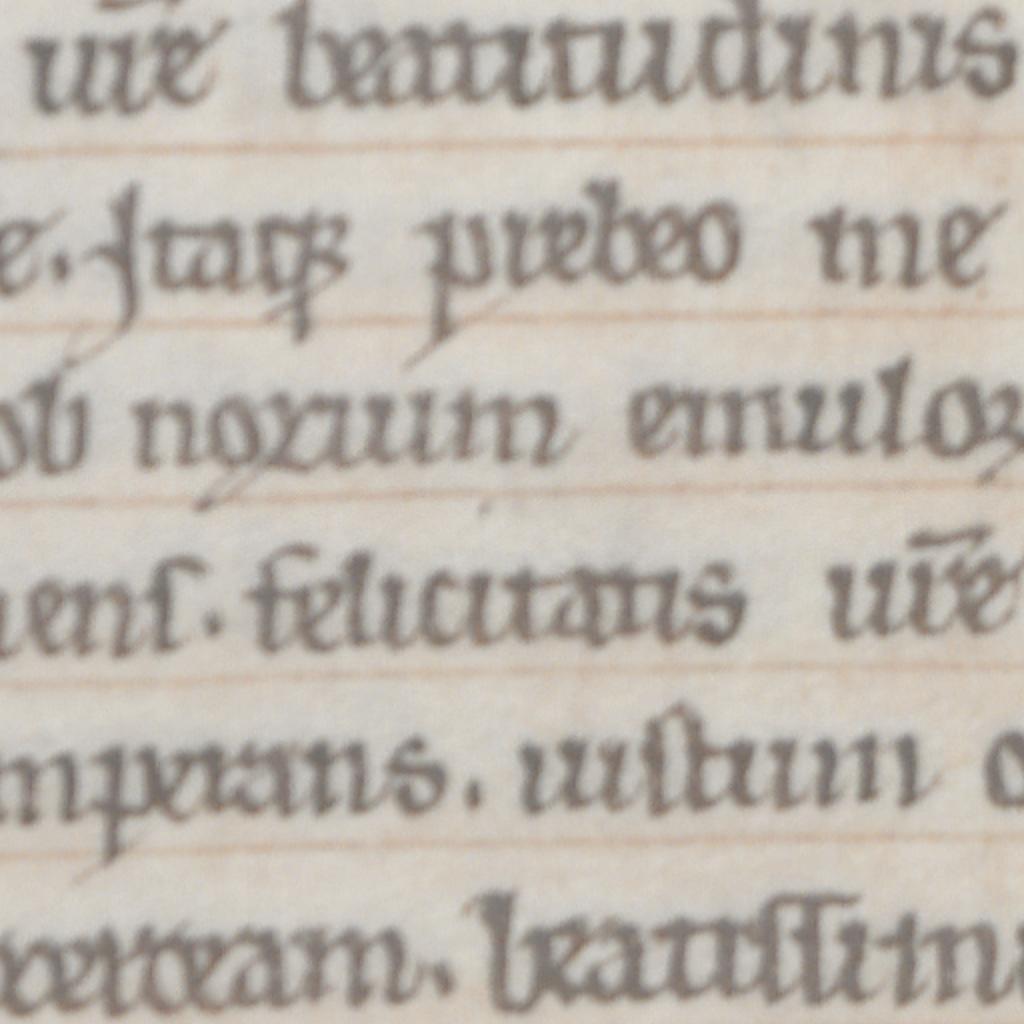 ur̄e beatitudinis
e. Itaqꝫ prebeo me
ob noxium emuloꝝ
enſ. felicitatis ur̄e
mperatis. iuſtum
beatiſſim